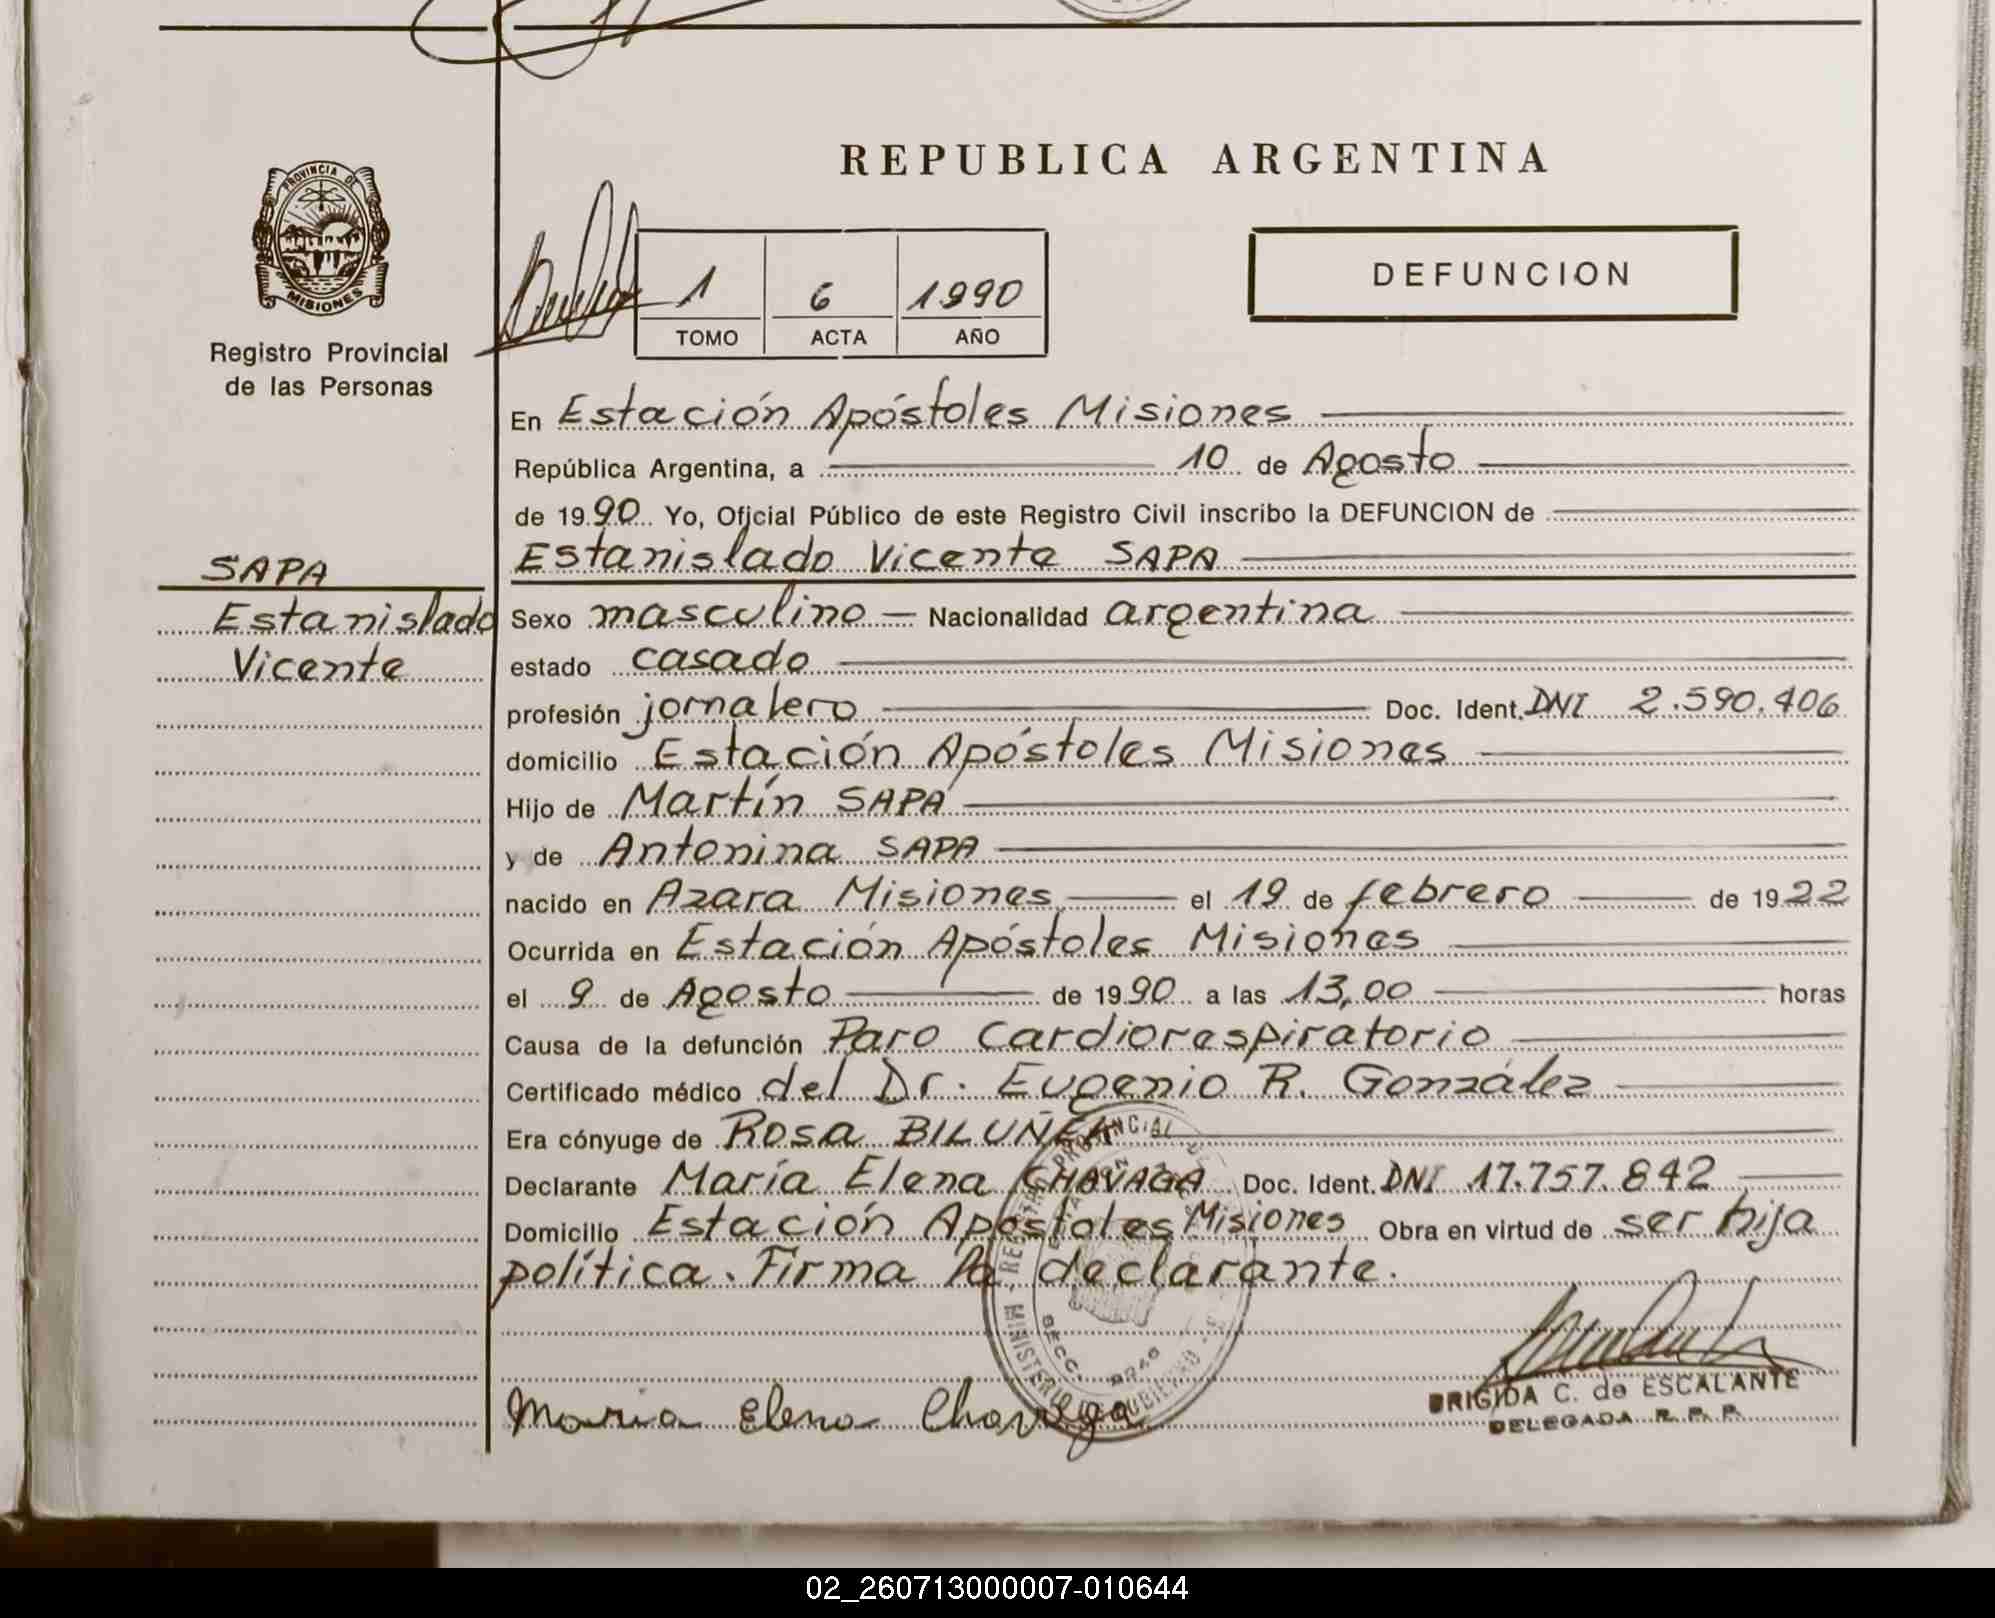 REPUBLICA ARGENTINA
PROVINCIA DE
MISIONES
Registro Provincial
de las Personas
1 6 1990
TOMO ACTA AÑO
DEFUNCION
En Estación Apóstoles Misiones
República Argentina, a 10 de Agosto
de 1990 Yo, Oficial Público de este Registro Civil inscribo la DEFUNCION de
Estanislado Vicente SAPA
SAPA
Estanislado
Vicente
Sexo masculino Nacionalidad argentina
estado casado
profesión jornalero Doc. Ident. DNI 2.590.406
domicilio Estación Apóstoles Misiones
Hijo de Martín SAPA
y de Antonina SAPA
nacido en Azara Misiones el 19 de febrero de 1922
Ocurrida en Estación Apóstoles Misiones
el 9 de Agosto de 1990 a las 13,00 horas
Causa de la defunción Paro Cardiorespiratorio
Certificado médico del Dr. Eugenio R. González
Era cónyuge de Rosa BILUÑEK
Declarante María Elena CHAVAGA Doc. Ident. DNI 17.757.842
Domicilio Estación Apóstoles Misiones Obra en virtud de ser hija
política. Firma la declarante.
Maria Elena Chavaga
BRIGIDA C. de ESCALANTE
DELEGADA R. P. P.
02_260713000007-010644